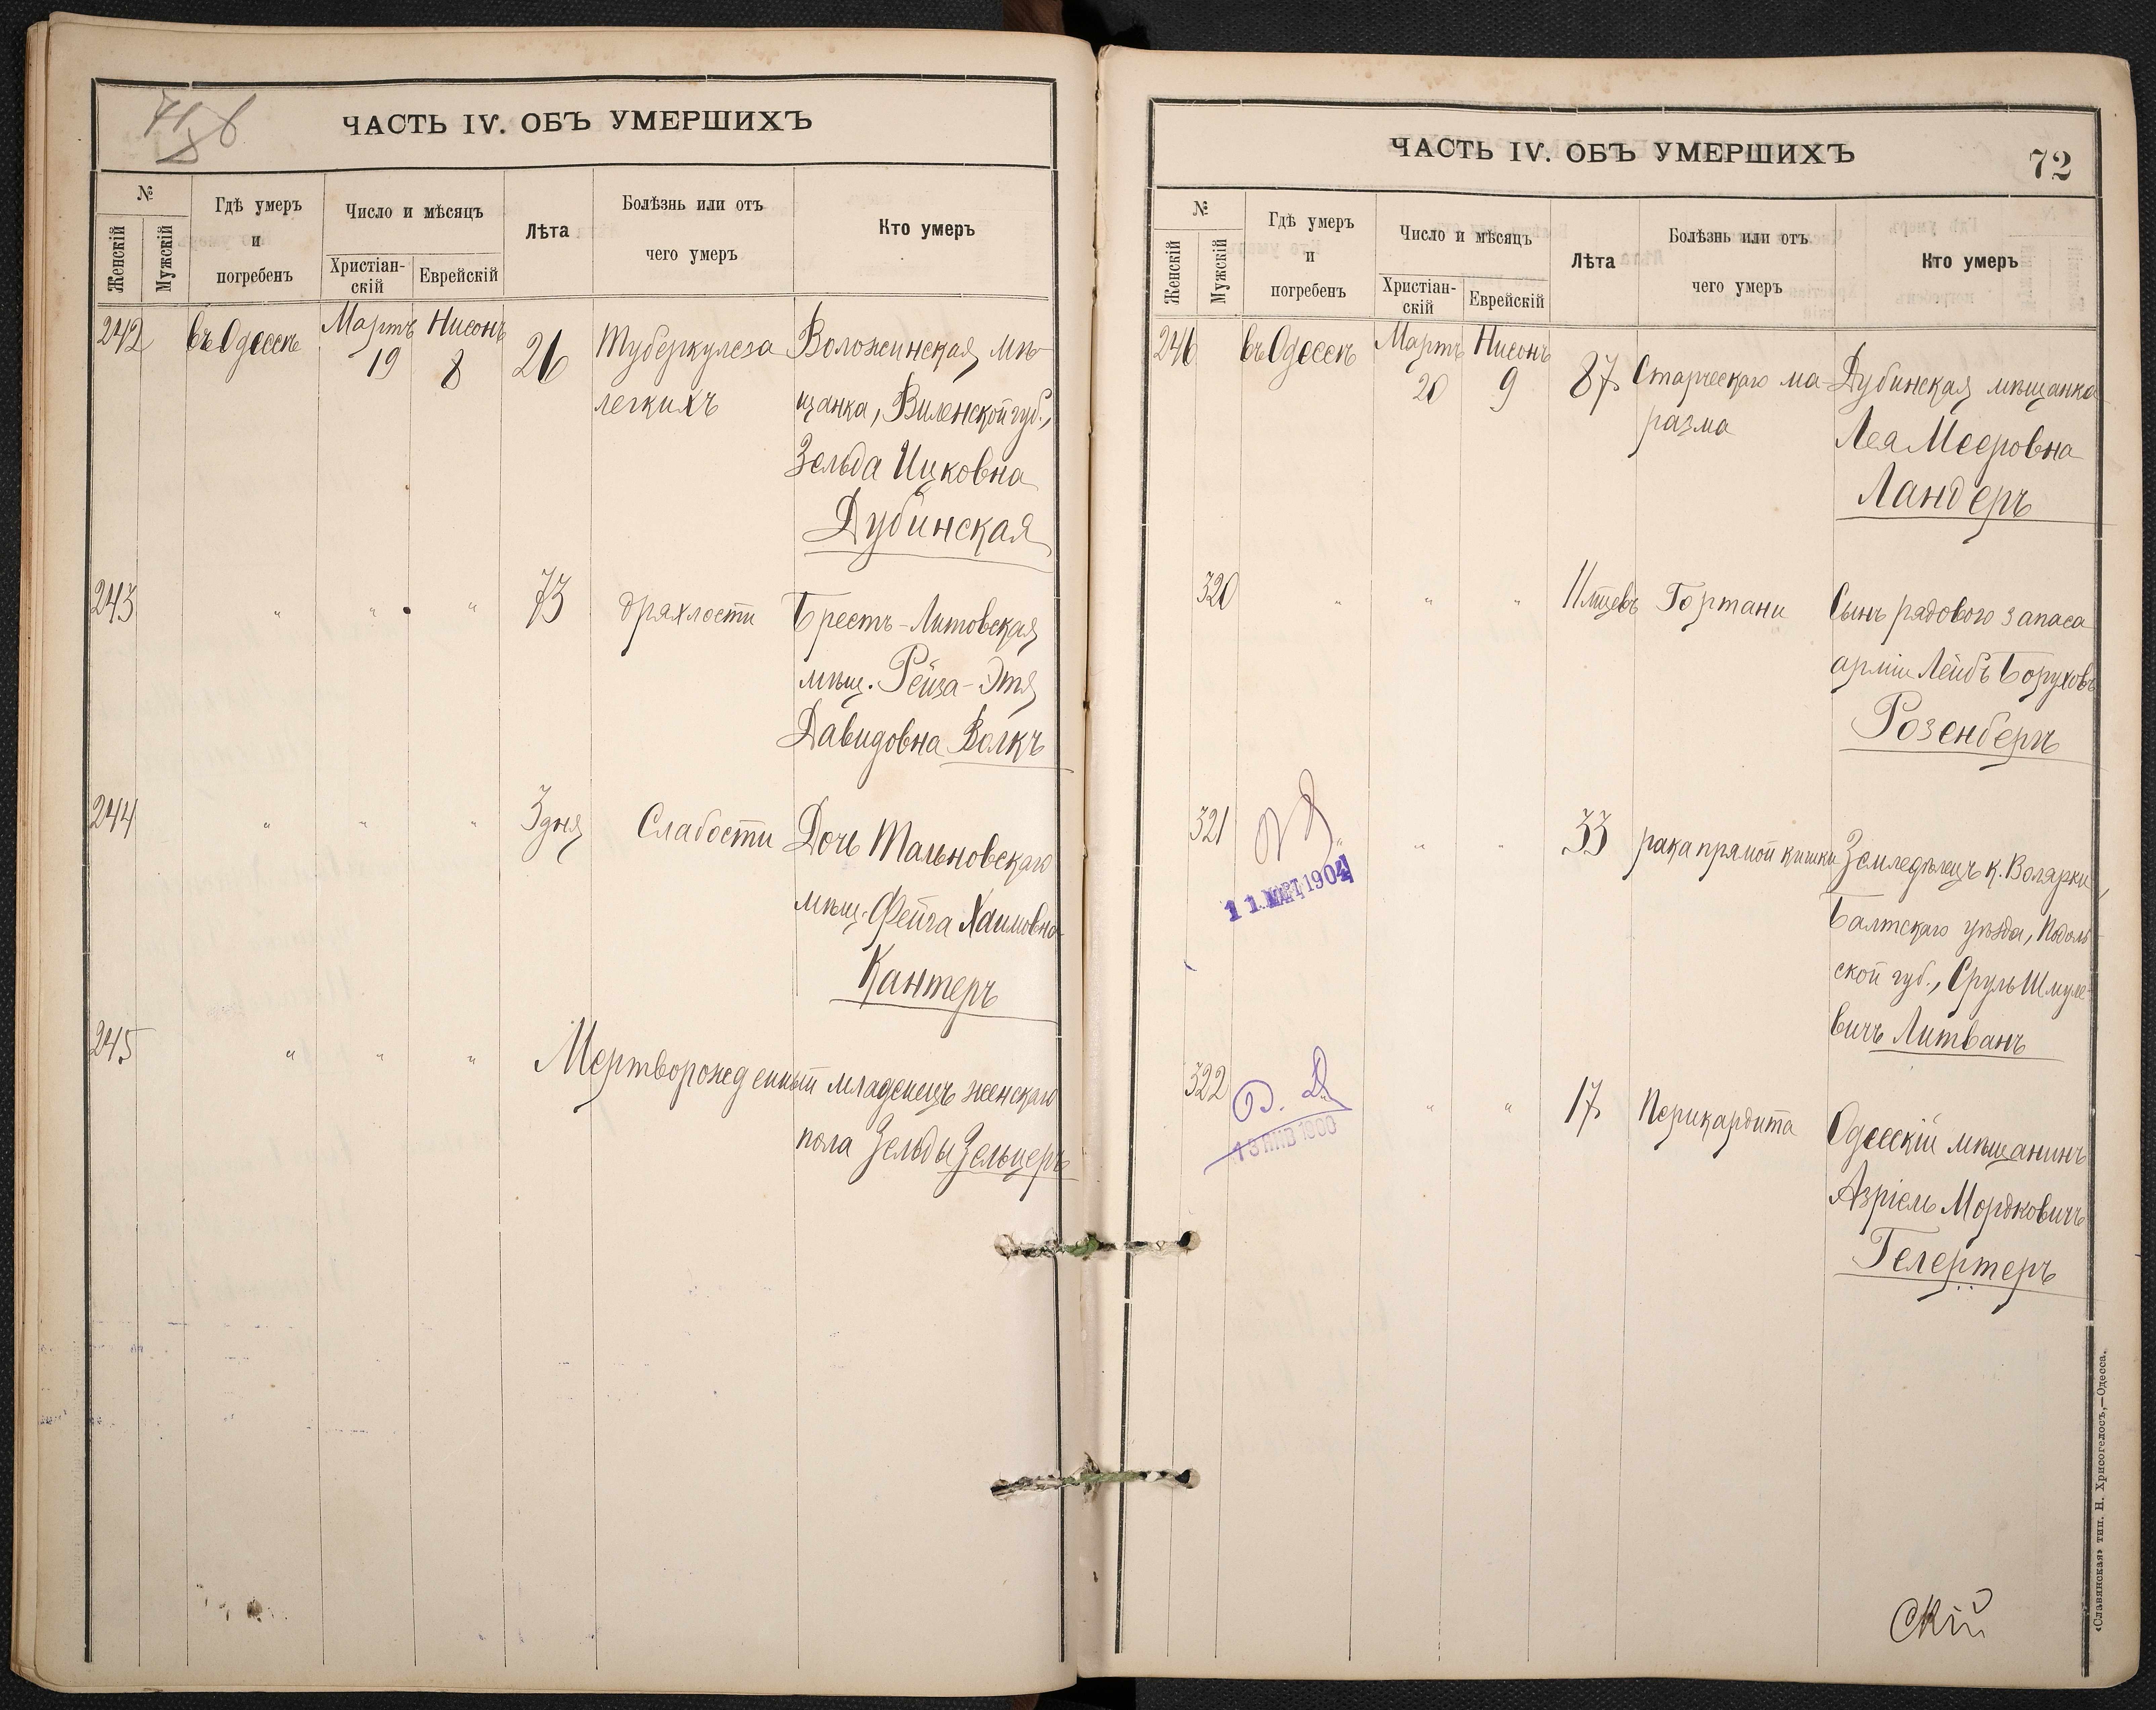 ЧАСТЬ IV. ОБЪ УМЕРШИХЪ
№
Женскій
Мужскій
Гдѣ умеръ
и
погребенъ
Число и мѣсяцъ
Христіан-
скій
Еврейскій
Лѣта
Болѣзнь или отъ
чего умеръ
Кто умеръ
242 въ Одессѣ Мартъ 19 Нисонъ 8 26
Туберкулеза
легкихъ
Воложинская мѣ-
щанка, Виленской губ.,
Зельда Ицковна
Дубинская
243 " " " 73 дряхлости
Брестъ-Литовская
мѣщ. Рейза-Этя
Давидовна Волкъ
244 " " " 3 дня Слабости
Дочь Тальновскаго
мѣщ. Фейга Хаимовна
Кантеръ
245 " " "
Мертворожденный младенецъ женскаго
пола Зельды Зельцеръ
ЧАСТЬ IV. ОБЪ УМЕРШИХЪ
72
№
Женскій
Мужскій
Гдѣ умеръ
и
погребенъ
Число и мѣсяцъ
Христіан-
скій
Еврейскій
Лѣта
Болѣзнь или отъ
чего умеръ
Кто умеръ
246 въ Одессѣ Мартъ 20 Нисонъ 9 87
Старческаго ма-
разма
Дубинская мѣщанка
Лея Мееровна
Ландеръ
320 " " " 11 мцевъ Гортани
Сынъ рядового запаса
арміи Лейбъ Боруховъ
Розенбергъ
321 " " " 33 рака прямой кишки
11 МАРТ 1904
Земледѣлецъ к. Волярки,
Балтскаго уѣзда, Подоль-
ской губ., Сруль Шмуле-
вичъ Литванъ
322 " " 17 Перикардита
13 ЯНВ 1900
Одесскій мѣщанинъ
Азріель Мордковичъ
Гелертеръ
скій
«Славянская» тип. Н. Хрисогелосъ,—Одесса.